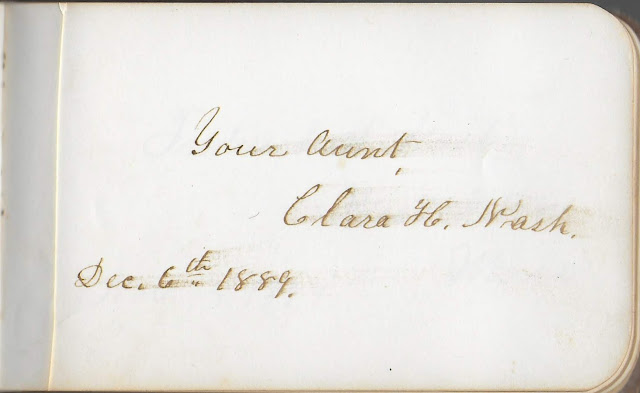 Your Aunt,
Clara H. Nash.
Dec. 6th 1889.